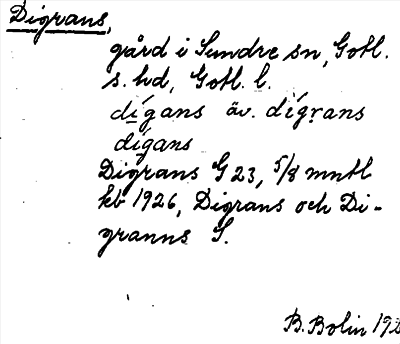 Digrans,
gård i Sundre sn, Gotl.
s. hd, Gotl. l.
dígans äv. dígrans
dígans
Digrans G 23, 5/8 mntl
kb 1926, Digrans och Di-
granns S.
B. Bolin